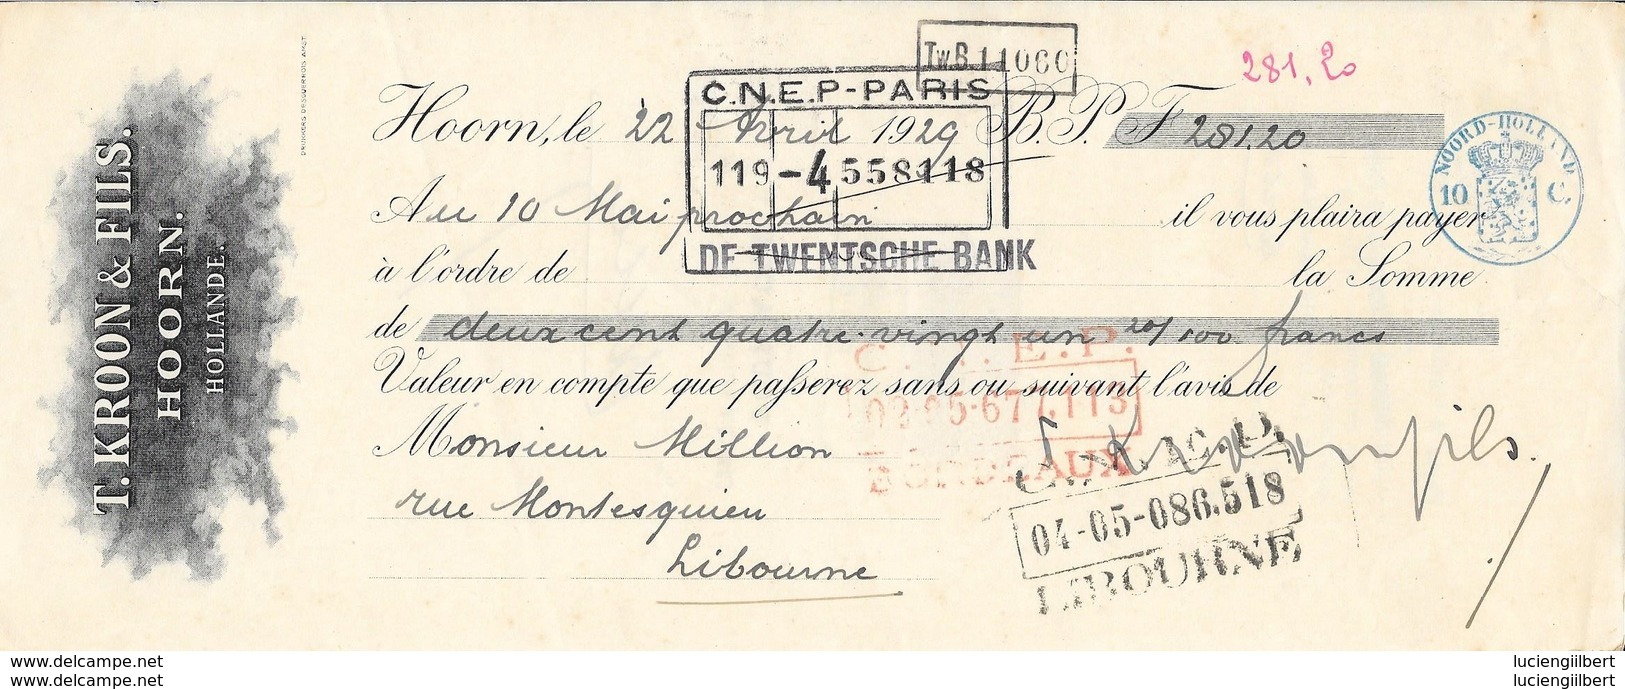 T. KROON & FILS.
HOORN.
HOLLANDE.
DRUKKERIJ DESGUERROIS AMST.
TwB 11060
281,20
C.N.E.P-PARIS
Hoorn, le 22 Avril 1929 B.P.F 281,20
119-4558118
NOORD-HOLLAND
10 C.
Au 10 Mai prochain il vous plaira payer
à l'ordre de DE TWENTSCHE BANK la Somme
de deux cent quatre-vingt un 20/100 francs
C.N.E.P.
Valeur en compte que passerez sans ou suivant l'avis de
Monsieur Million
BORDEAUX
T. Kroon fils.
rue Montesquieu
04-05-086.518
Libourne
LIBOURNE
www.delcampe.net
www.delcampe.net
luciengilbert
luciengilbert